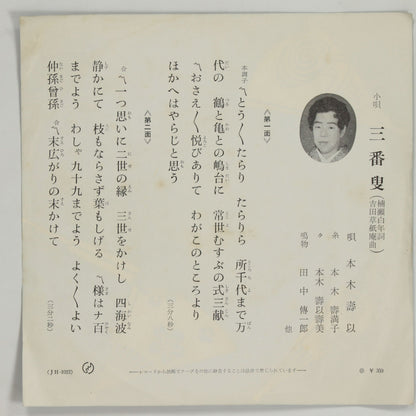 小唄
三番叟
(楠瀬白年詞
吉田草紙庵曲)
唄 本木壽以
糸 本木壽満子
〃 本木壽以美
鳴物 田中傳一郎
他
〈第一面〉
本調子
〽とう〳〵たらり たらりら 所千代まで万
代の 鶴と亀との嶋台に 常世むすぶの式三献
〽おさえ〳〵悦びありて わがこのところより
ほかへはやらじと思う
(三分八秒)
〈第二面〉
☆〽一つ思いに二世の縁 三世をかけし 四海波
静かにて 枝もならさず葉もしげる 〽様はナ百
までよう わしゃ九十九までよう よく〳〵よい
仲孫曾孫 ☆〽末広がりの末かけて
(三分二秒)
￥300
レコードから無断でテープその他に録音することは法律で禁じられています